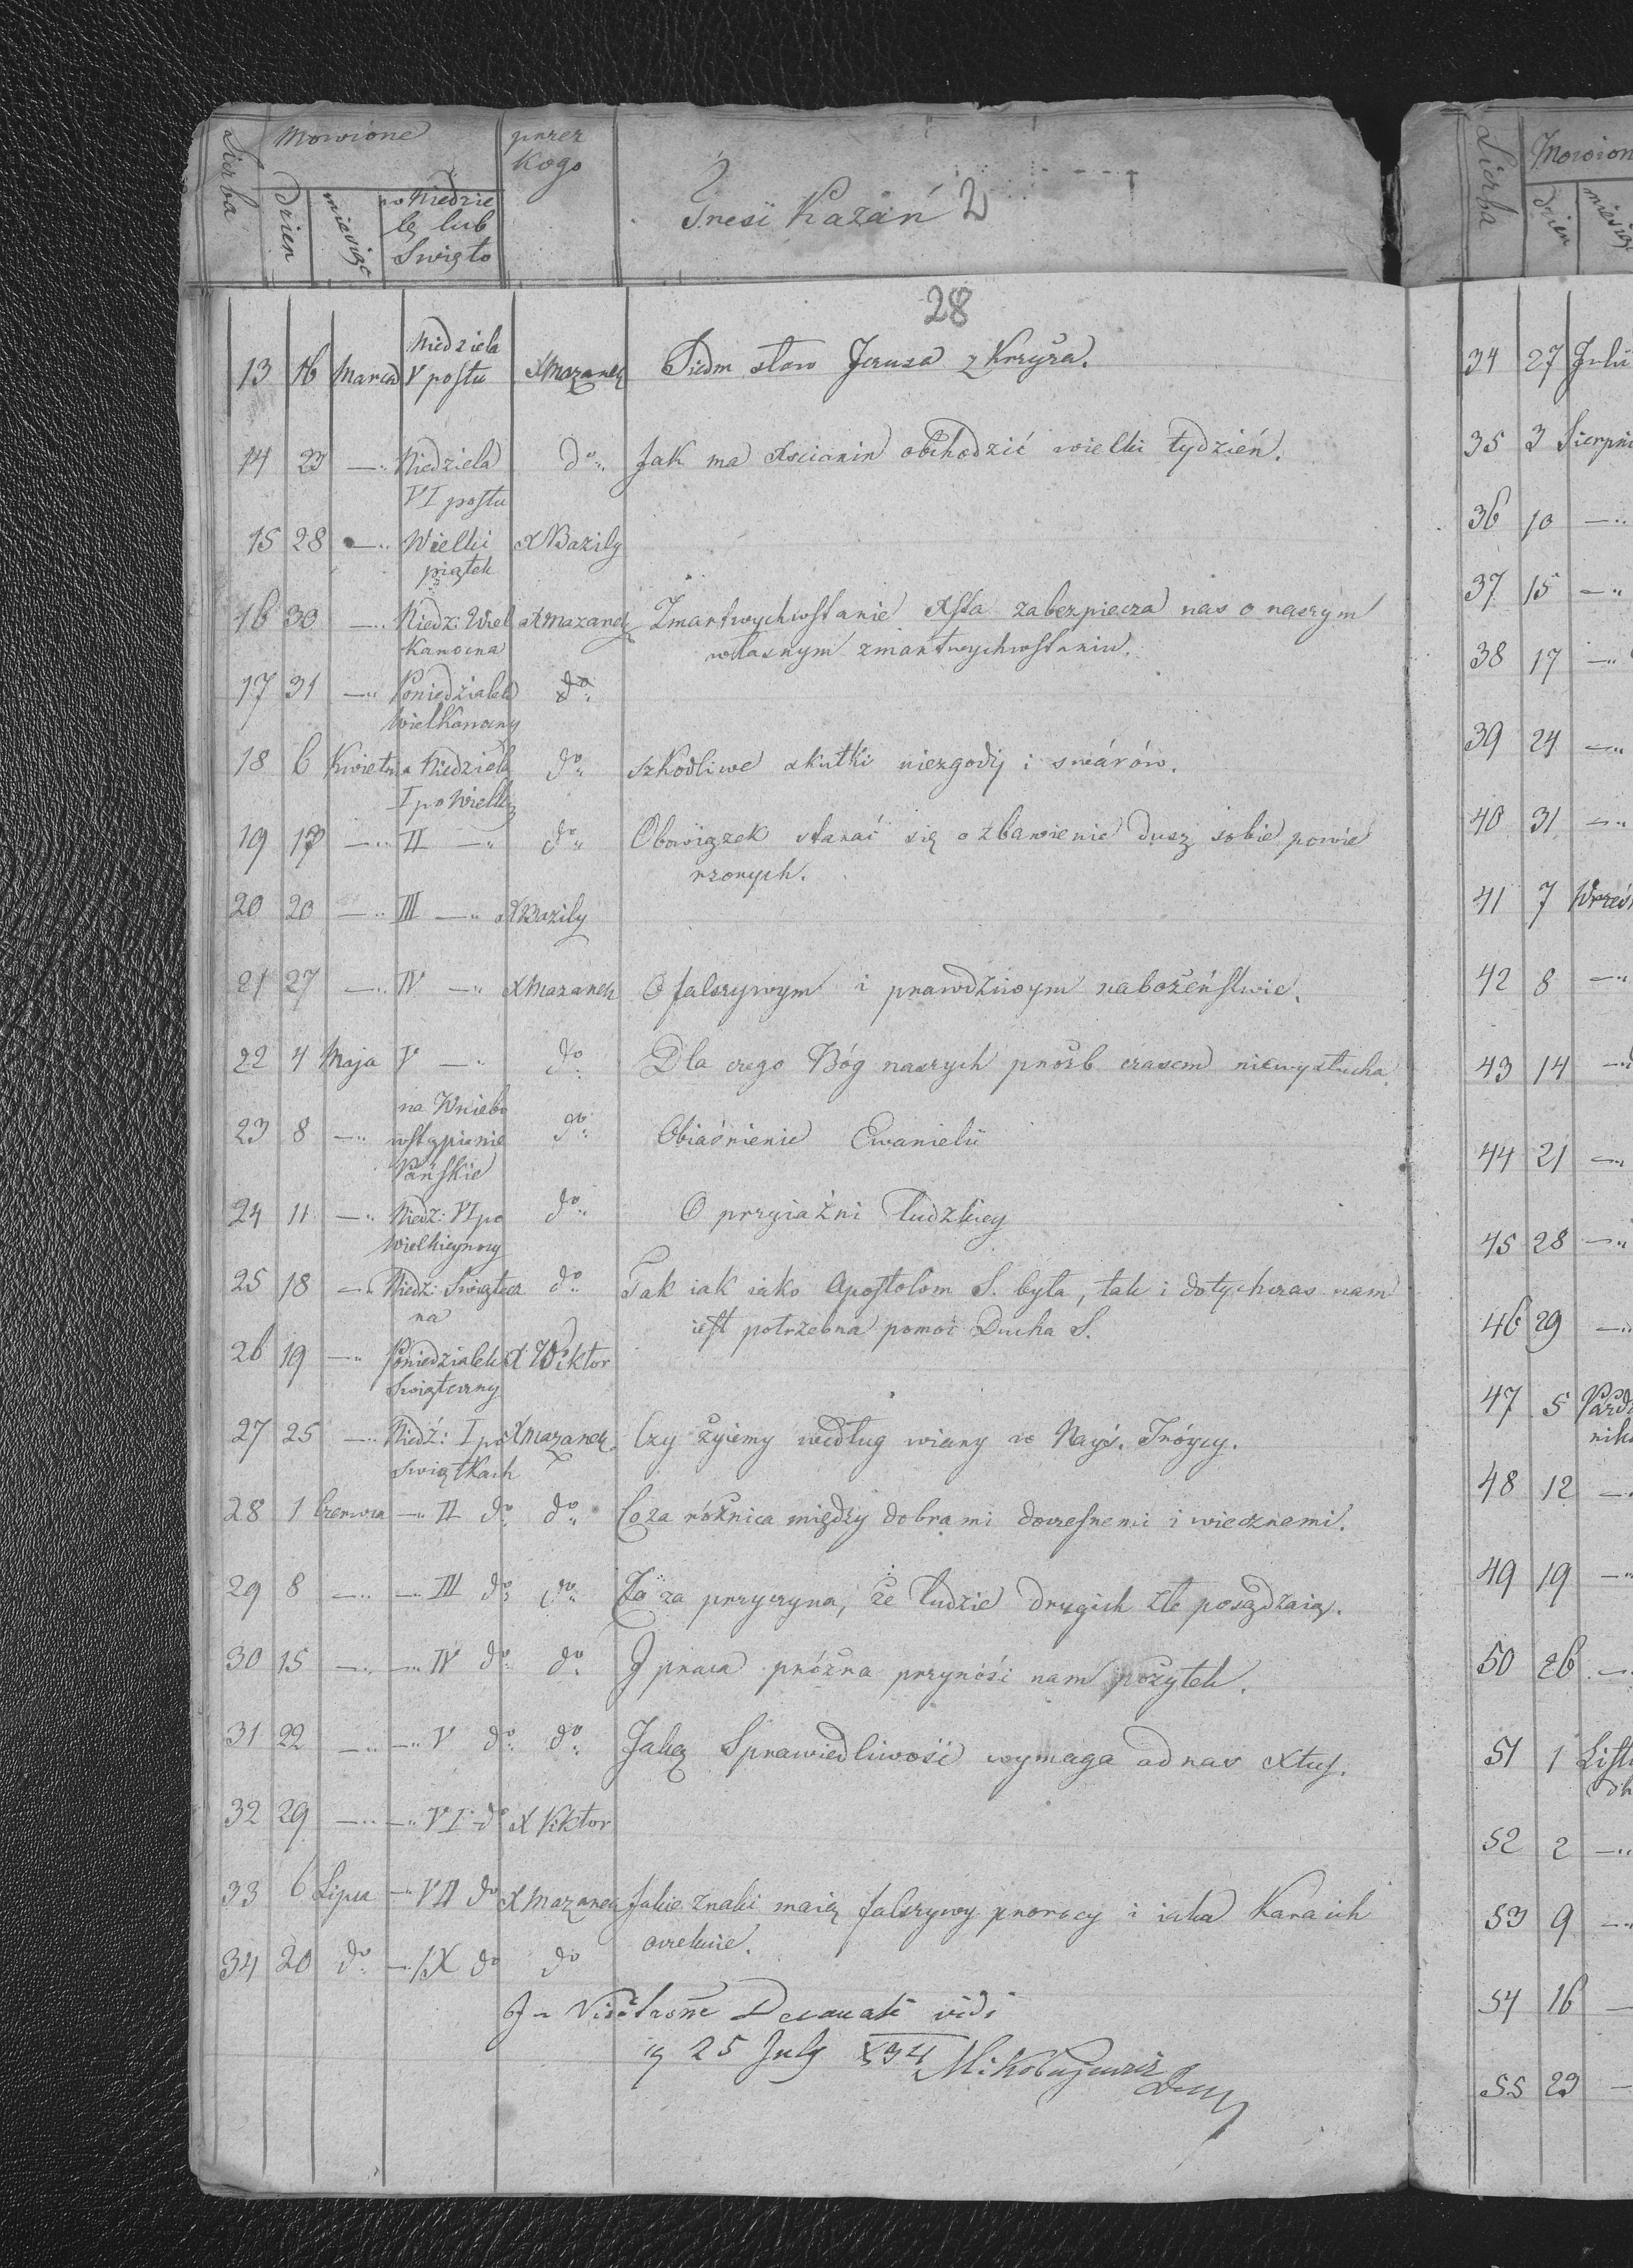 Liczba mowione przez
Kogo
Dzien miesiąc w Niedzie
lę lub
Swięto
Tresć Kazań 2
28
13 16 Marca Niedziela
V postu XMazanek Siedm słow Jezusa z Krzyża.
14 23 —„ Niedziela
VI postu do„ Jak ma Xscianin obchodzić wielki tydzień.
15 28 —„ Wielki
piątek XBazily
16 30 —„ Niedz: Wiel
Kanocna XMazanek Zmartwychwstanie Xsta zabezpiecza nas o naszym
własnym zmartwychwstaniu.
17 31 —„ Poniedziałek
Wielkanocny do„
18 6 Kwietnia Niedziela
I po Wielk do„ szkodliwe skutki niezgody i swárów.
19 13 —„ II —„ do„ Obowiązek starać się o zbawienie dusz sobie powie
rzonych.
20 20 —„ III —„ XBazily
21 27 —„ IV —„ XMazanek O falszywym i prawdziwym nabożeństwie.
22 4 Maja V —„ do„ Dla czego Bóg naszych prośb czasem niewysłucha
23 8 —„ na Wniebo
wstąpienie
Pańskie do„ Obiaśnienie Ewanielii
24 11 —„ Niedz: VI po
Wielkieynocy do„ O przyiaźni ludzkiey
25 18 —„ Niedz: Swiątecz
na do„ Tak iak iako Apostolom S. była, tak i dotychczas nam
iest potrzebna pomoc Ducha S.
26 19 —„ Poniedziałek
Swiąteczny X Wiktor
27 25 —„ Niedź: I po
swiątkach XMazanek Czy żyiemy według wiary w Nayś. Tróycy.
28 1 Czerwca —„ II do„ do„ Co za różnica między dobrami doczesnemi i wiecznemi.
29 8 —„ —„ III do„ do„ Co za przyczyna, że ludzie drugich źle posądzaią.
30 15 —„ —„ IV do„ do„ I praca prózna przynóśi nam pożytek.
31 22 —„ —„ V do„ do„ Jaką Sprawiedliwość wymaga od nas Xtus.
32 29 —„ —„ VI do X Viktor
33 6 Lipca —„ VII do XMazanek Jakie znaki maią falszywy prorocy i iaka Kara ich
czekaie.
34 20 do„ —„ IX do do
In Visitatione Decanali vidi
25 July 834 Mikołajewicz
34 27 Julii
35 3 Sierpni
36 10 —„
37 15 —„
38 17 —„
39 24 —„
40 31 —„
41 7 Wrześ
42 8 —„
43 14 —„
44 21 —„
45 28 —„
46 29 —„
47 5 Paźdź
nik
48 12 —„
49 19 —„
50 26 —„
51 1 Listo
52 2 —„
53 9 —„
54 16 —
55 23 —
Liczba Mowion
dzien miesiąc